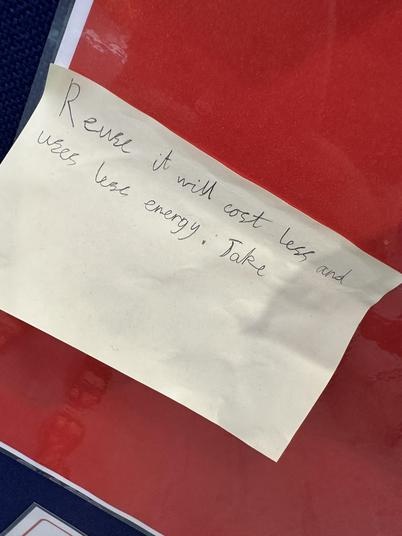 Reuse it will cost less and
uses less energy. Take